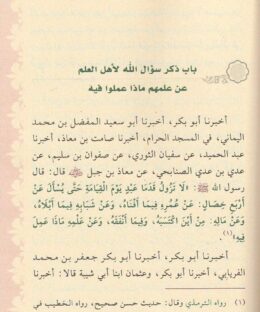 باب ذكر سؤال الله لأهل العلم
عن علمهم ماذا عملوا فيه
أخبرنا أبو بكر، أخبرنا أبو سعيد المفضل بن محمد
اليماني، في المسجد الحرام، أخبرنا صامت بن معاذ، أخبرنا
عبد الحميد، عن سفيان الثوري، عن صفوان بن سليم، عن
عدي بن عدي الصنابحي، عن معاذ بن جبل ﷺ قال: قال
رسول الله ﷺ: «لَا تَزُولُ قَدَمَا عَبْدٍ يَوْمَ الْقِيَامَةِ حَتَّى يُسْأَلَ عَنْ
أَرْبَعِ خِصَالٍ: عَنْ عُمُرِهِ فِيمَا أَفْنَاهُ، وَعَنْ شَبَابِهِ فِيمَا أَبْلَاهُ،
وَعَنْ مَالِهِ: مِنْ أَيْنَ اكْتَسَبَهُ، وَفِيمَا أَنْفَقَهُ، وَعَنْ عِلْمِهِ مَاذَا عَمِلَ
فِيهِ»(١).
أخبرنا أبو بكر، أخبرنا أبو بكر جعفر بن محمد
الفريابي، أخبرنا أبو بكر، وعثمان ابنا أبي شيبة قالا: أخبرنا
(١) رواه الترمذي وقال: حديث حسن صحيح، رواه الخطيب في